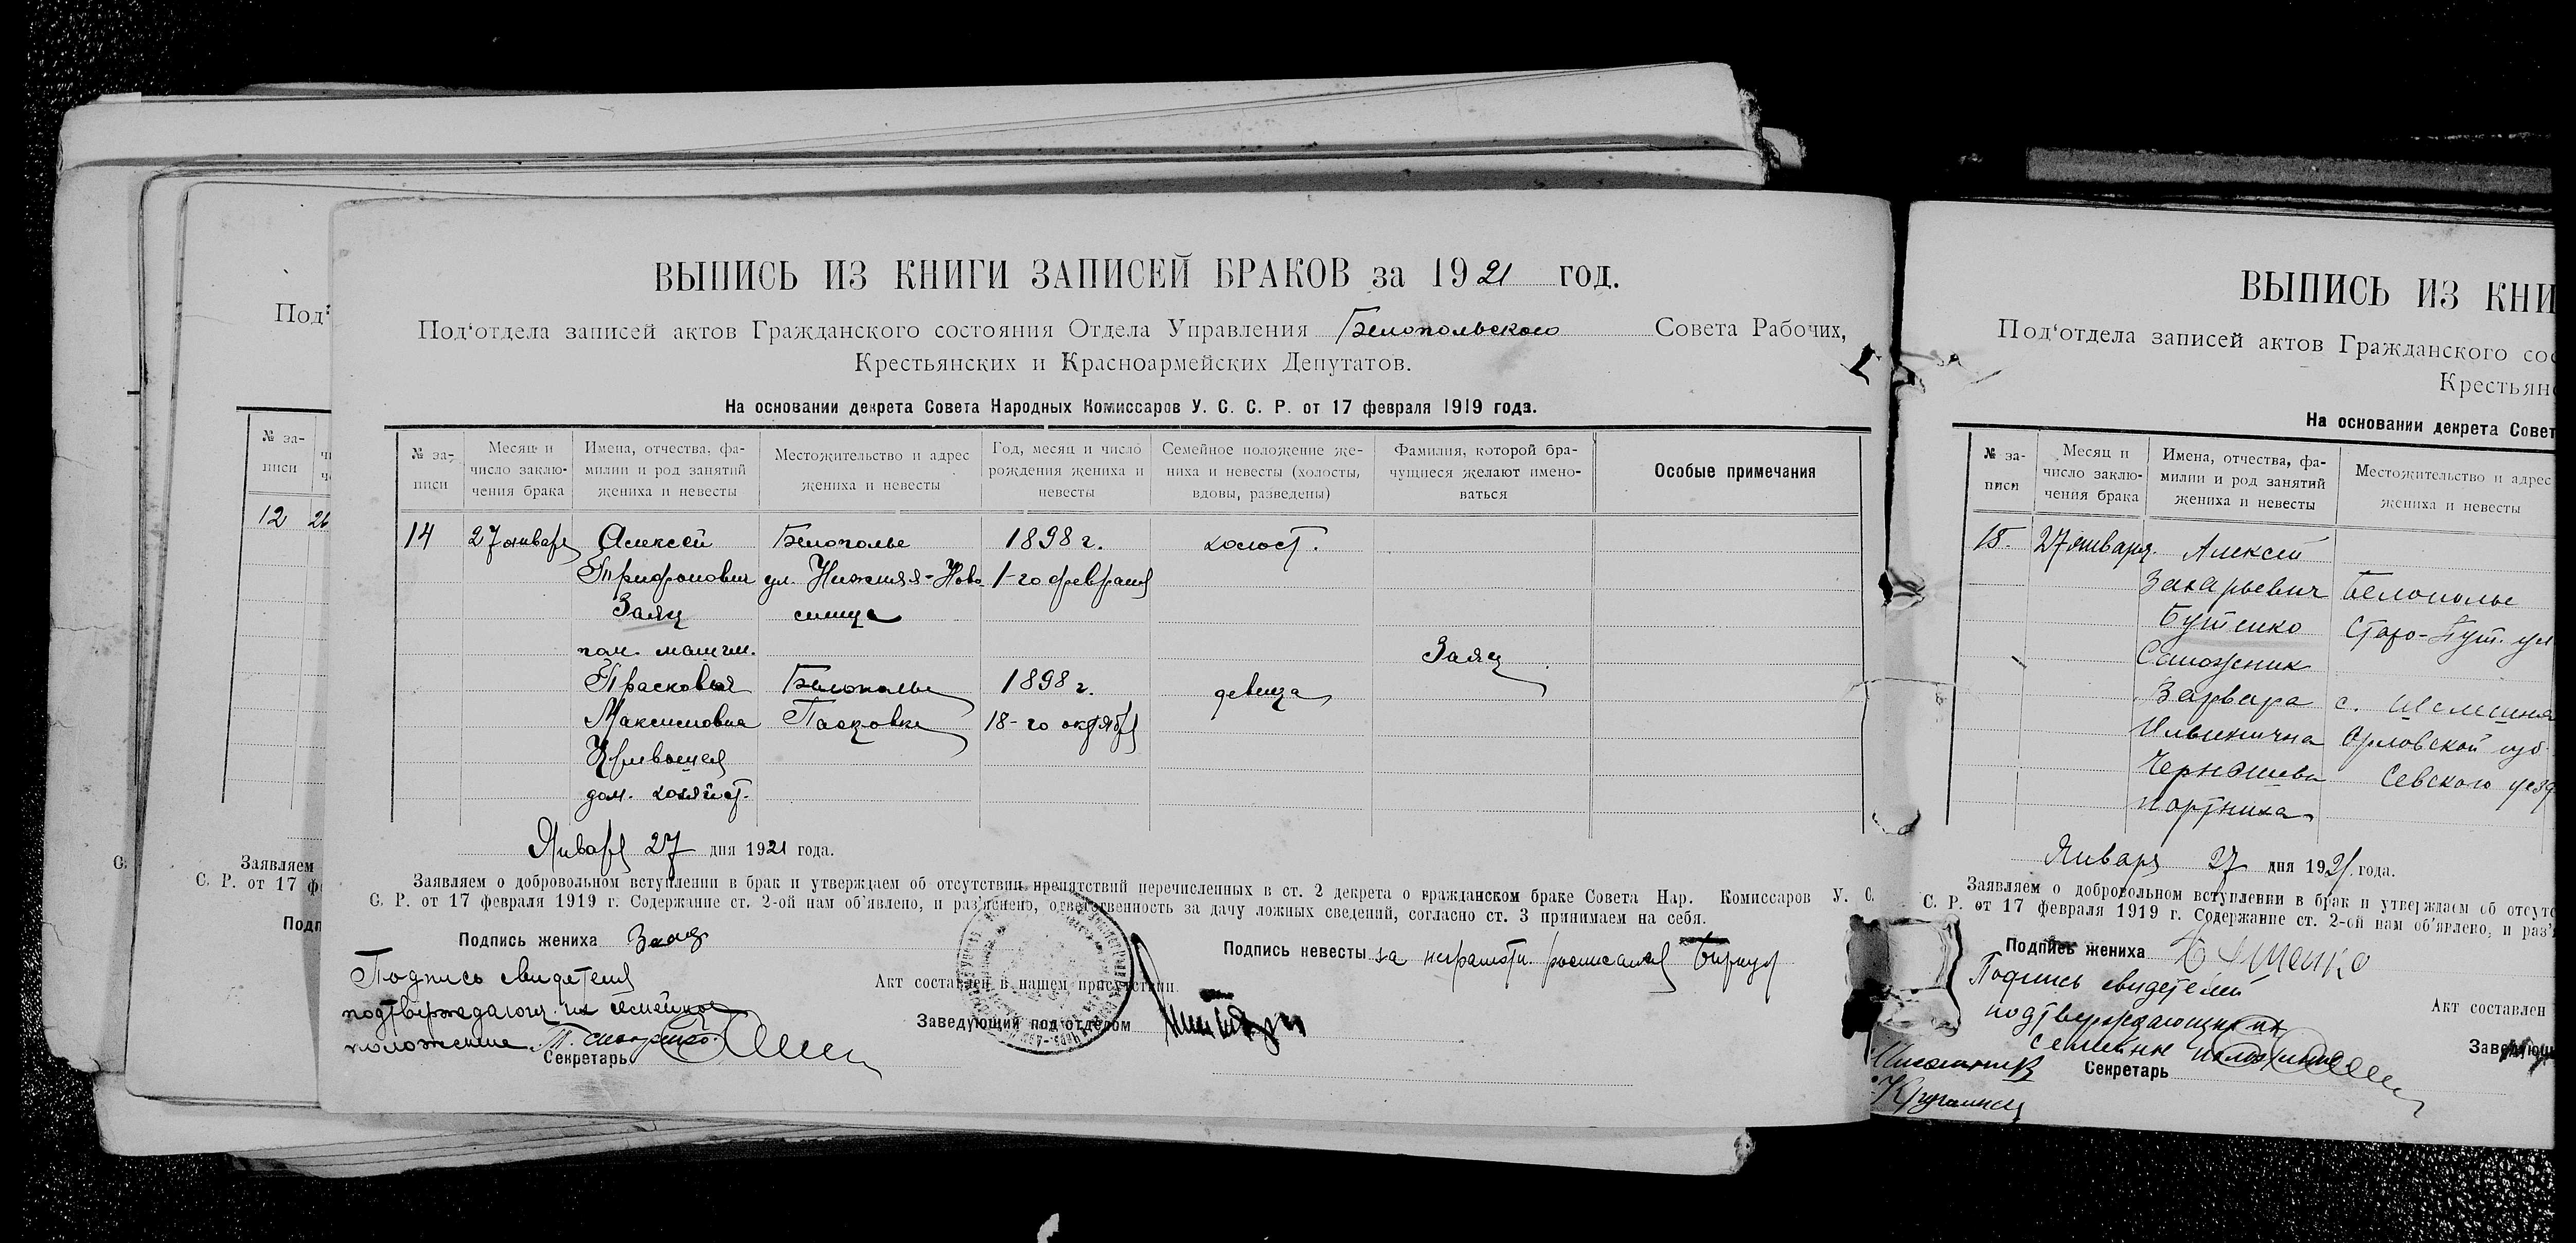 ВЫПИСЬ ИЗ КНИГИ ЗАПИСЕЙ БРАКОВ за 1921 год.
Под‘отдела записей актов Гражданского состояния Отдела Управления Белопольского Совета Рабочих,
Крестьянских и Красноармейских Депутатов.
На основании декрета Совета Народных Комиссаров У. С. С. Р. от 17 февраля 1919 года.
№ за-
писи
Месяц и
число заклю-
чения брака
Имена, отчества, фа-
милии и род занятий
жениха и невесты
Местожительство и адрес
жениха и невесты
Год, месяц и число
рождения жениха и
невесты
Семейное положение же-
ниха и невесты (холосты,
вдовы, разведены)
Фамилия, которой бра-
чущиеся желают имено-
ваться
Особые примечания
14 27 января Алексей Белополье 1898 г. холост.
Трифонович ул. Нижняя-Ново- 1-го февраля
Заяц
пом. машин.
Заяц
Прасковья Белополье 1898 г. девица
Максимовна 18-го октября
дом. хозяйст.
Января 27 дня 1921 года.
Заявляем о добровольном вступлении в брак и утверждаем об отсутствии препятствий перечисленных в ст. 2 декрета о гражданском браке Совета Нар. Комиссаров У. С.
С. Р. от 17 февраля 1919 г. Содержание ст. 2-ой нам об‘явлено, и раз‘яснено, ответственность за дачу ложных сведений, согласно ст. 3 принимаем на себя.
Подпись жениха Заяц
Подпись невесты за неграмотн. росписался
Подпись свидетеля
подтверждающ. их семейное
положение
Акт составлен в нашем присутствии.
Заведующий под‘отделом
Секретарь
Под‘
№ за-
писи
12 26
Заявляем
С. Р. от 17 ф
Подп
ВЫПИСЬ ИЗ КНИ
Под‘отдела записей актов Гражданского сос
Крестьянс
На основании декрета Совет
№ за-
писи
Месяц и
число заклю-
чения брака
Имена, отчества, фа-
милии и род занятий
жениха и невесты
Местожительство и адрес
жениха и невесты
15. 27 января. Алексей
Захарьевич Белополье
Бутенко Старо-Пут. ул
Сапожник
Варвара с.
Ильинична Орловской губ.
Севского уезд
портниха
Января 27 дня 1921 года.
Заявляем о добровольном вступлении в брак и утверждаем об отсутс
С. Р. от 17 февраля 1919 г. Содержание ст. 2-ой нам об‘явлено, и раз‘я
Подпись жениха
Подпись свидетелей
подтверждающих их
семейн положение
Акт составлен
Заведующ
Секретарь